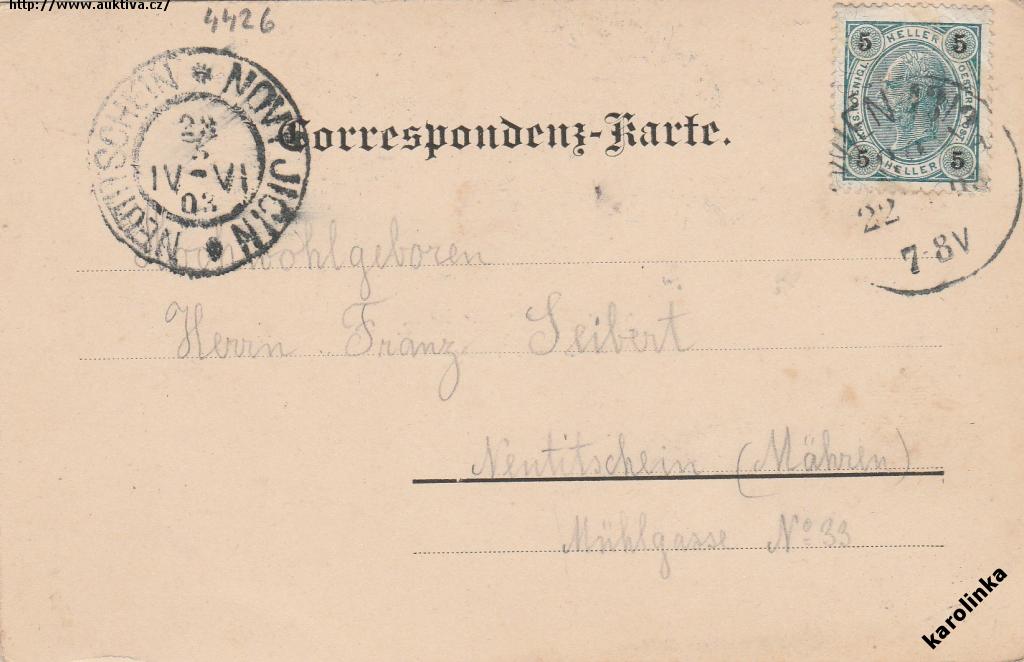 http://www.auktiva.cz/
4426
NEUTITSCHEIN * NOVÝ JIČÍN *
IV-VI
03
Correspondenz-Karte.
5 HELLER 5
5 HELLER 5
22
7-8V
Hochwohlgeboren
Herrn Franz Seibert
Neutitschein (Mähren)
Mühlgasse No 33
karolinka